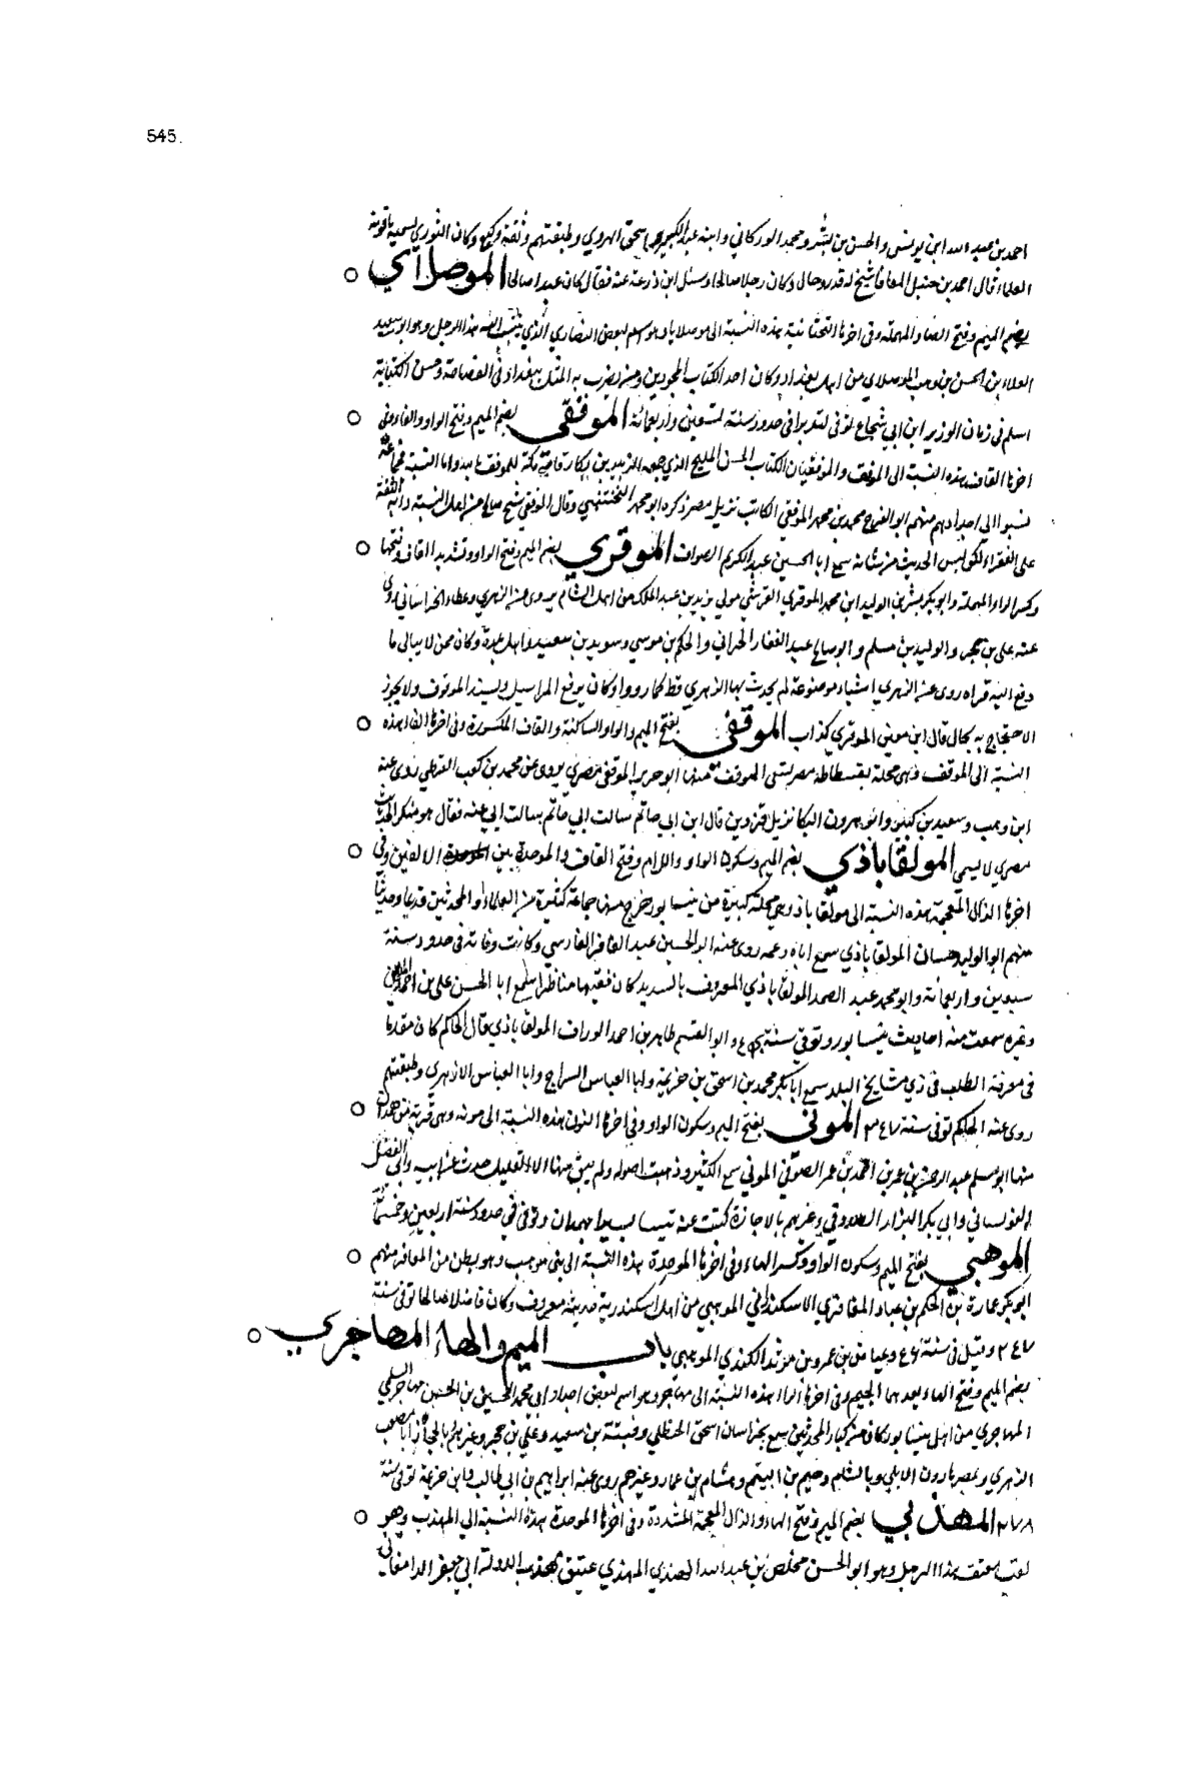 545.
احمد بن عبد الله ابن يونس والحسن بن بشر ومحمد الوركاني وابنه عبد الكبير واسحق الهروي وطبقتهم وثقه وكيع وكان الثوري يسميه ياقوتة
العلماء قال احمد بن حنبل المعافا شيخ له قدر وحال وكان رجلا صالحا وسئل ابن ذرعة عنه فقال كان عبدا صالحا الموصلائي
بضم الميم وفتح الصاد المهملة وفي اخرها التحتانية هذه النسبة الى موصلايا وهو اسم لبعض النصاري الذي ينتسب اليه هذا الرجل وهو ابو سعيد
العلاء بن الحسن بن وهب الموصلاي من اهل بغداد وكان احد الكتاب المجودين ومن يضرب به المثل ببغداد في الفصاحة وحسن الكتابة
اسلم في زمان الوزير ابن ابي شجاع توفي في حدود سنة تسعين واربعمائة الموفقي بضم الميم وفتح الواو والفاء وفي
اخرها القاف هذه النسبة الى الموفق والموفقيات الكتاب الحسن المليح الذي جمعه الزبير بن بكار قاضي مكة للموفق بالله واما النسبة فجماعة
نسبوا الى اجدادهم منهم ابو الفرج محمد بن محمد الموفقي الكاتب نزيل مصر ذكره ابو محمد النخشبي وقال الموفقي شيخ صالح
على الفقراء لكن ليس الحديث من شانه سمع ابا الحسين عبد الكريم الصواف الموقري بضم الميم وفتح الواو وتشديد القاف وفتحها
وكسر الراء المهملة وابو بكر بشر بن الوليد ابن محمد الموقري القرشي مولي يزيد بن عبد الملك من اهل الشام يروي عن الزهري وعطاء الخراساني روي
عنه علي بن حجر والوليد بن مسلم وابو صالح عبد الغفار الحراني والحكم بن موسي وسويد بن سعيد واهل بلده وكان ممن لا يبالي ما
دفع اليه قراه روى عن الزهري اشياء موضوعة لم يحدث بها الزهري قط كما رووا وكان يرفع المراسيل ويسند الموقوف ولا يجوز
الاحتجاج به بحال قال ابن معين الموقري كذاب الموقفي بفتح الميم والواو الساكنة والقاف المكسورة وفي اخرها الفا هذه
النسبة الى الموقف وهي محلة بفسطاط مصر يسمى الموقف منها ابو حرير الموقفي مصري يروي عن محمد بن كعب القرظي روي عنه
ابن وهب وسعيد بن كثير وابو هرون البكا نزيل قزوين قال ابن ابي حاتم سالت ابي عنه فقال هو منكر الحديث
مصري لا يسمى المولقاباذي بضم الميم وسكون الواو واللام وفتح القاف والموحدة بين الالفين وفي
اخرها الذال المعجمة هذه النسبة الى مولقا باذ وهي محلة كبيرة من نيسابور خرج منها جماعة كثيرة من العلماء والمحدثين قديما وحديثا
منهم ابو الوليد حسان المولقا باذي سمع اباه وعمه روى عنه ابو الحسين عبد الغافر الفارسي وكانت وفاته في حدود سنة
سبعين واربعمائة وابو محمد عبد الصمد المولقا باذي المعروف بالسديد كان فقيها مناظرا سمع ابا الحسن علي بن احمد
وغيره سمعت منه احاديث بنيسابور وتوفي سنة وابو القسم طاهر بن احمد الوراق المولقا باذي قال الحاكم كان مقدما
في معرفة الطلب في زي مشايخ البلد سمع ابا بكر محمد بن اسحق بن خزيمة وابا العباس السراج وابا العباس الازهري وطبقتهم
روى عنه الحاكم توفي سنة ٣٤٧ الموني بفتح الميم وسكون الواو وفي اخرها النون هذه النسبة الى مونه وهي قرية من همدان
منها ابو مسلم عبد الرحمن بن عمر بن احمد بن عمر الصوفي الموني سمع الكثير وذهبت اصوله ولم يبق منها الا القليل حدث عن ابيه وابي الفضل
القومساني وابي بكر البزار الصدوقي وغيرهم بالاجازة كتبت عنه بهمدان وتوفي في حدود سنة اربعين وخمسمائة
الموهبي بفتح الميم وسكون الواو وكسر الهاء وفي اخرها الموحدة هذه النسبة الى بني موهب وهو بطن من المعافر منهم
ابو بكر عمارة بن الحكم بن عباد المعافري الاسكندراني الموهبي من اهل اسكندرية حديثه معروف وكان فاضلا صالحا توفي سنة
وقيل في سنة وعياش بن عمرو بن مرثد الكندي الموهبي باب الميم والهاء المهاجري
بضم الميم وفتح الهاء بعدهما الجيم وفي اخرها الراء هذه النسبة الى مهاجر وهو اسم لبعض اجداد ابي محمد الحسين بن الحسن مهاجر السلمي
المهاجري من اهل نيسابور كان من كبار المحدثين سمع بخراسان اسحق الحنظلي وقتيبة بن سعيد وعلي بن حجر وغيرهم بالحجاز ابا مصعب
الزهري وبمصر هارون الايلي وبالشام دحيم بن اليتيم وهشام بن عمار وغيرهم روى عنه ابراهيم بن ابي طالب وابن خزيمة توفي سنة
٢٧٨ المهذبي بضم الميم وفتح الهاء والذال المعجمة المشددة وفي اخرها الموحدة هذه النسبة الى المهذب وهو
لقب معتق هذا الرجل وهو ابو الحسن مخلص بن عبد الله الهندي المهذبي عتيق مهذب الدولة ابي جعفر الدامغاني